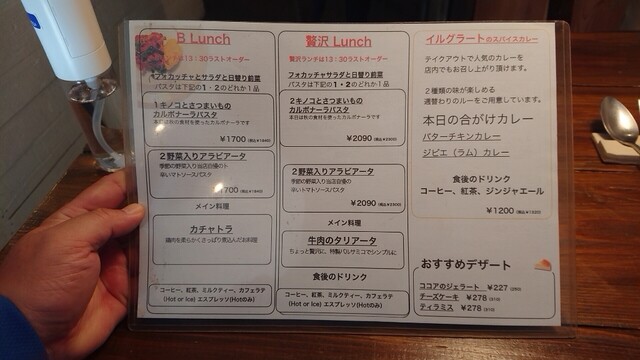 B Lunch
ランチは13：30ラストオーダー
フォカッチャとサラダと日替り前菜
パスタは下記の1・2のどれか1品
1キノコとさつまいもの
カルボナーラパスタ
本日は秋の食材を使ったカルボナーラです
¥1700
2野菜入りアラビアータ
季節の野菜入り当店自慢のト
辛いマトソースパスタ
700
メイン料理
カチャトラ
鶏肉を柔らかくさっぱり煮込んだお料理
コーヒー、紅茶、ミルクティー、カフェラテ
(Hot or Ice) エスプレッソ(Hotのみ)
贅沢 Lunch
贅沢ランチは13：30ラストオーダー
フォカッチャサラダと日替り前菜
パスタは下記の1・2のどれか1品
2キノコとさつまいもの
カルボナーラパスタ
本日は秋の食材を使ったカルボナーラです
¥2090 (税込¥2300)
2野菜入りアラビアータ
季節の野菜入り当店自慢の
辛いトマトソースパスタ
¥2090 (税込¥2300)
メイン料理
牛肉のタリアータ
ちょっと贅沢に、特製バルサミコでシンプルに
食後のドリンク
コーヒー、紅茶、ミルクティー、カフェラテ
(Hot or Ice) エスプレッソ(Hotのみ)
イルグラートのスパイスカレー
テイクアウトで人気のカレーを
店内でもお召し上がり頂けます。
2種類の味が楽しめる
週替わりのルーをご用意しています。
本日の合がけカレー
バターチキンカレー
ジビエ（ラム）カレー
食後のドリンク
コーヒー、紅茶、ジンジャエール
¥1200 (税込¥1320)
おすすめデザート
ココアのジェラート ¥227 (250)
チーズケーキ ¥278
ティラミス ¥278